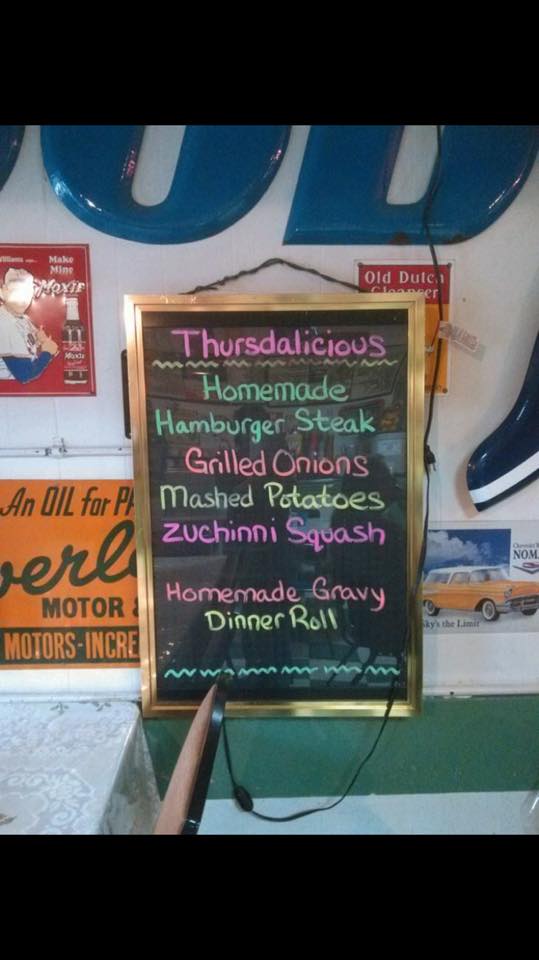 Williams says...
Make
Mine
Moxie
Moxie
Old Dutch
Cleanser
Thursdalicious
Homemade
Hamburger Steak
Grilled Onions
Mashed Potatoes
Zuchinni Squash
Homemade Gravy
Dinner Roll
An OIL for P
verl
MOTOR
MOTORS-INCRE
NOM
Sky's the Limit